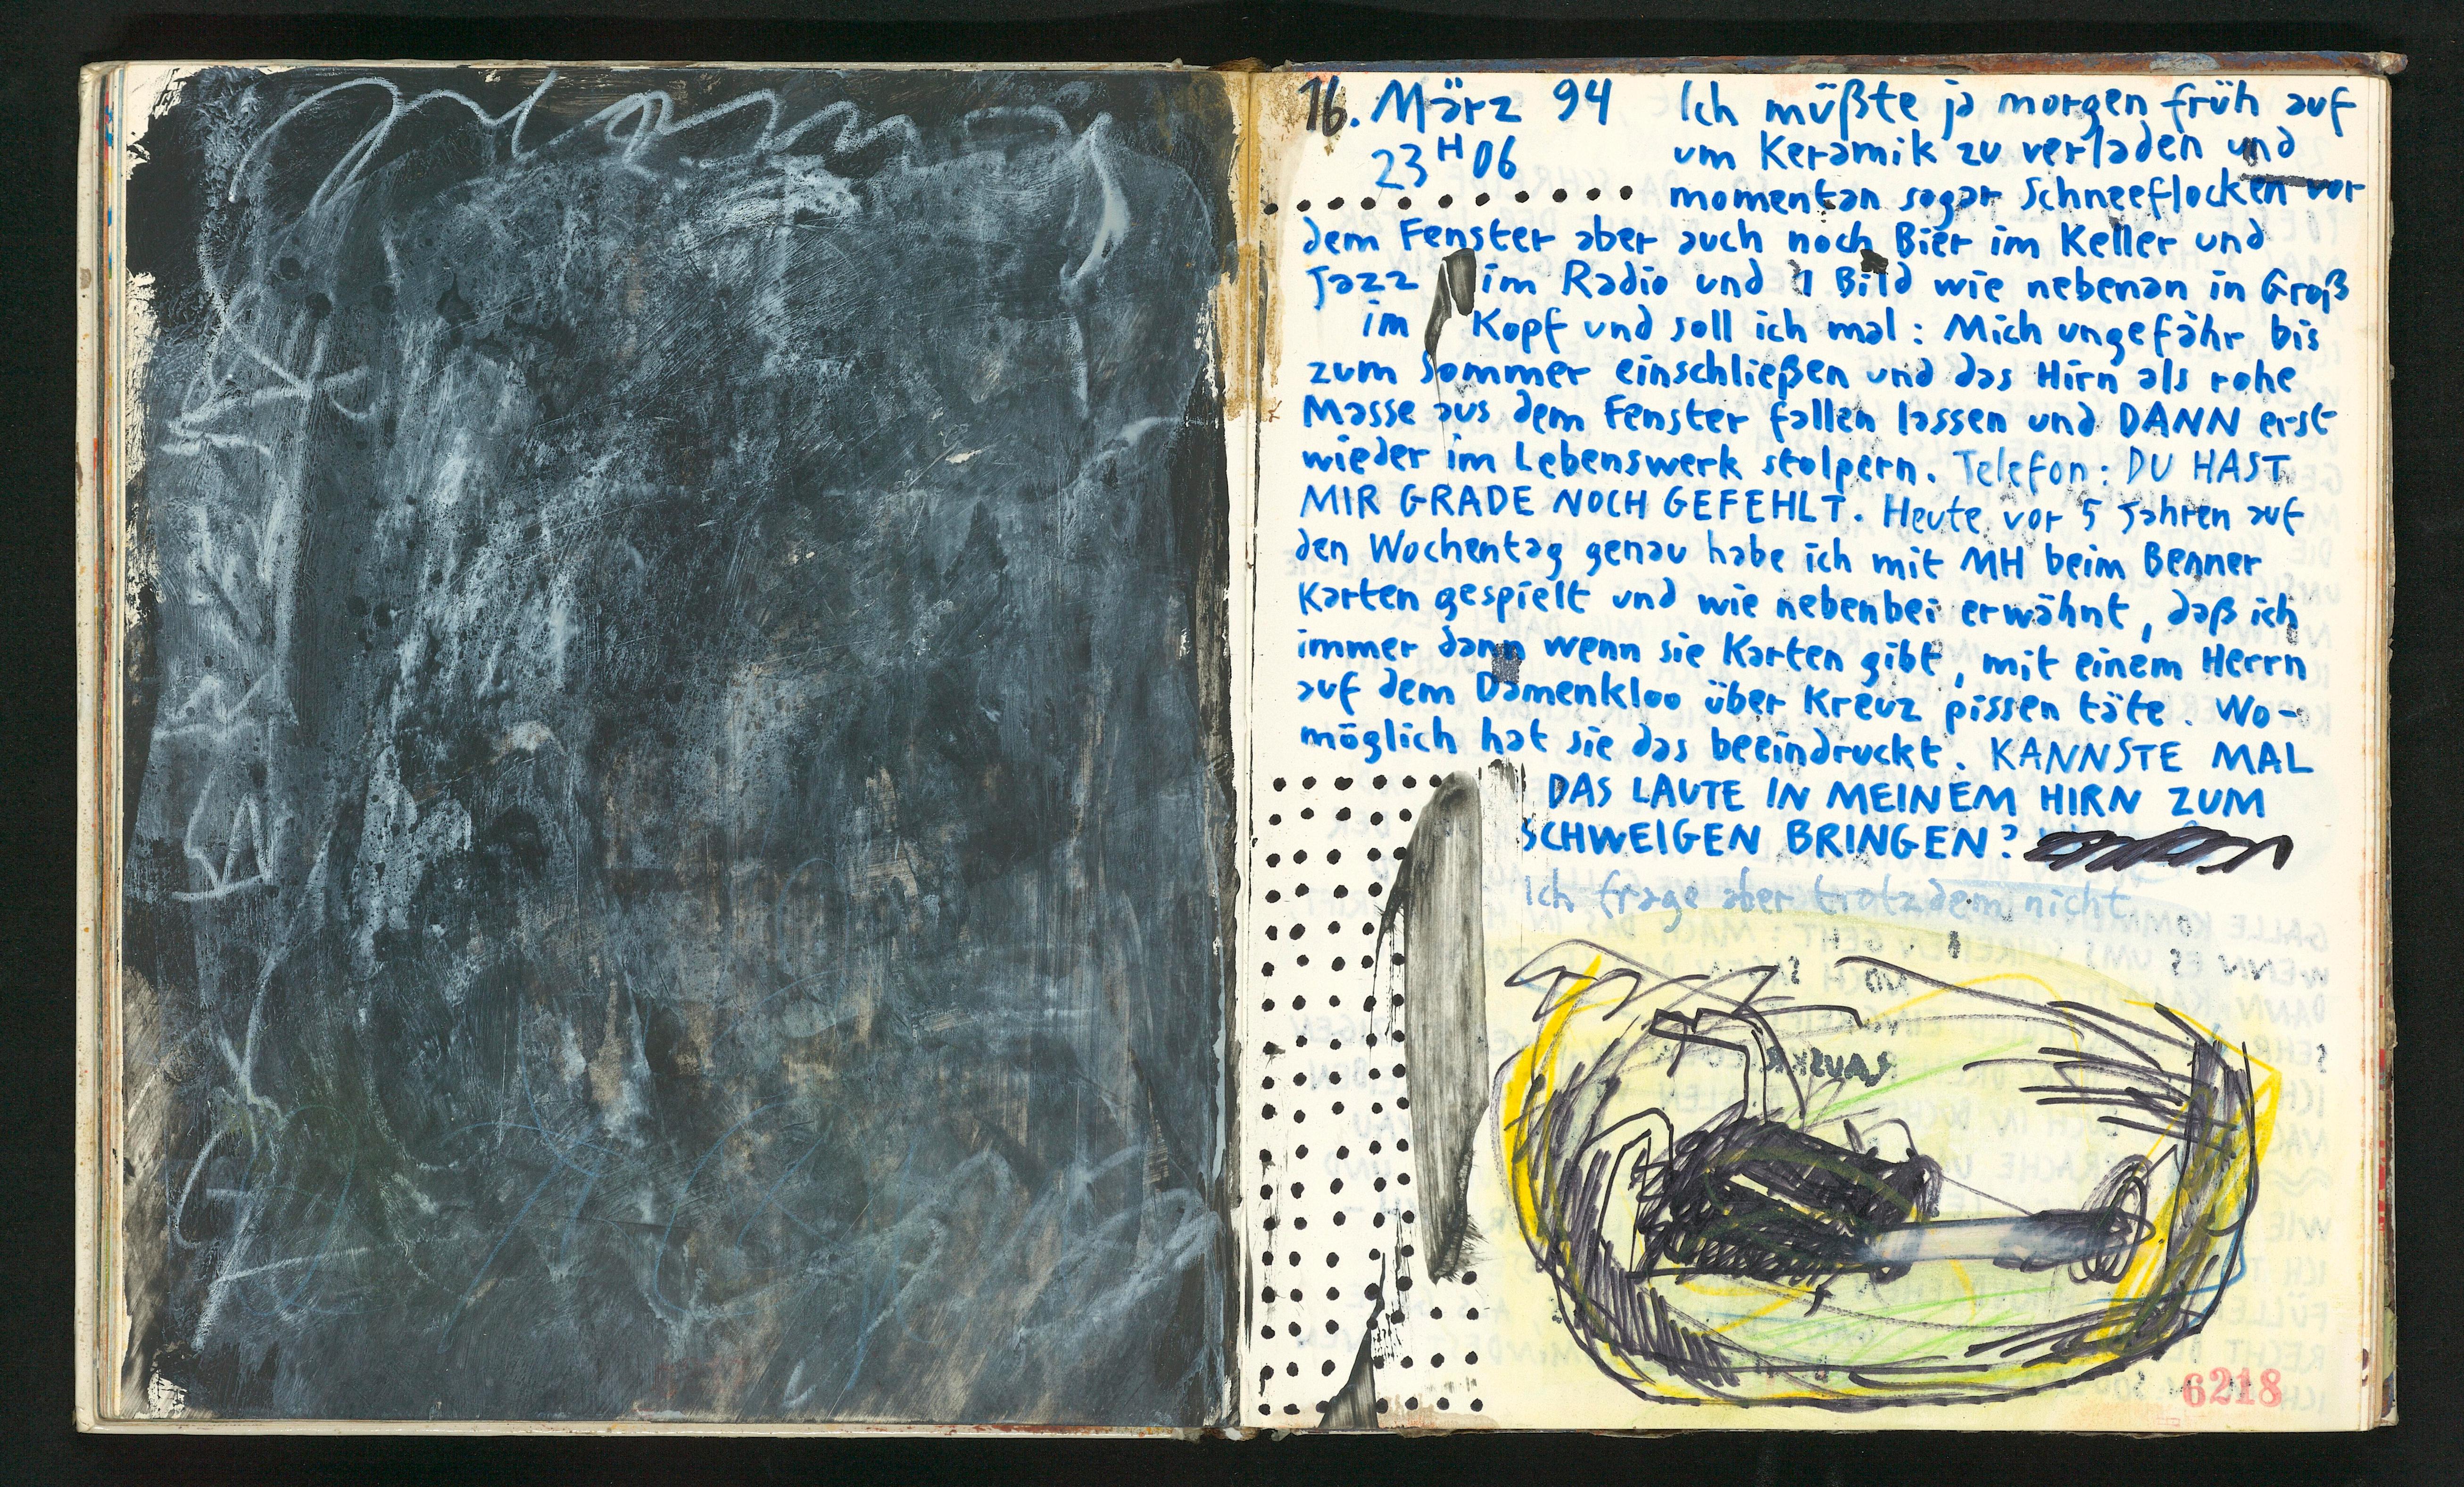 16. März 94
23 H 06
Ich müßte ja morgen früh auf
um Keramik zu verladen und
momentan sogar Schneeflocken vor
dem Fenster aber auch noch Bier im Keller und
Jazz im Radio und 1 Bild wie nebenan in Groß
im Kopf und soll ich mal: Mich ungefähr bis
zum Sommer einschließen und das Hirn als rohe
Masse aus dem Fenster fallen lassen und DANN erst
wieder im Lebenswerk stolpern. Telefon: DU HAST
MIR GRADE NOCH GEFEHLT. Heute vor 5 Jahren auf
den Wochentag genau habe ich mit MH beim Benner
Karten gespielt und wie nebenbei erwähnt, daß ich
immer dann wenn sie Karten gibt, mit einem Herrn
auf dem Damenkloo über Kreuz pissen täte. Wo-
möglich hat sie das beeindruckt. KANNSTE MAL
DAS LAUTE IN MEINEM HIRN ZUM
SCHWEIGEN BRINGEN?
Ich frage aber trotzdem nicht
6218